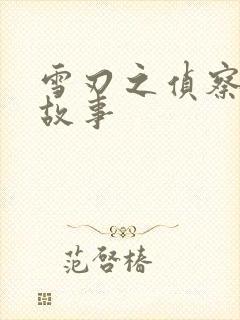 雪刃之偵察
故事
范啓椿